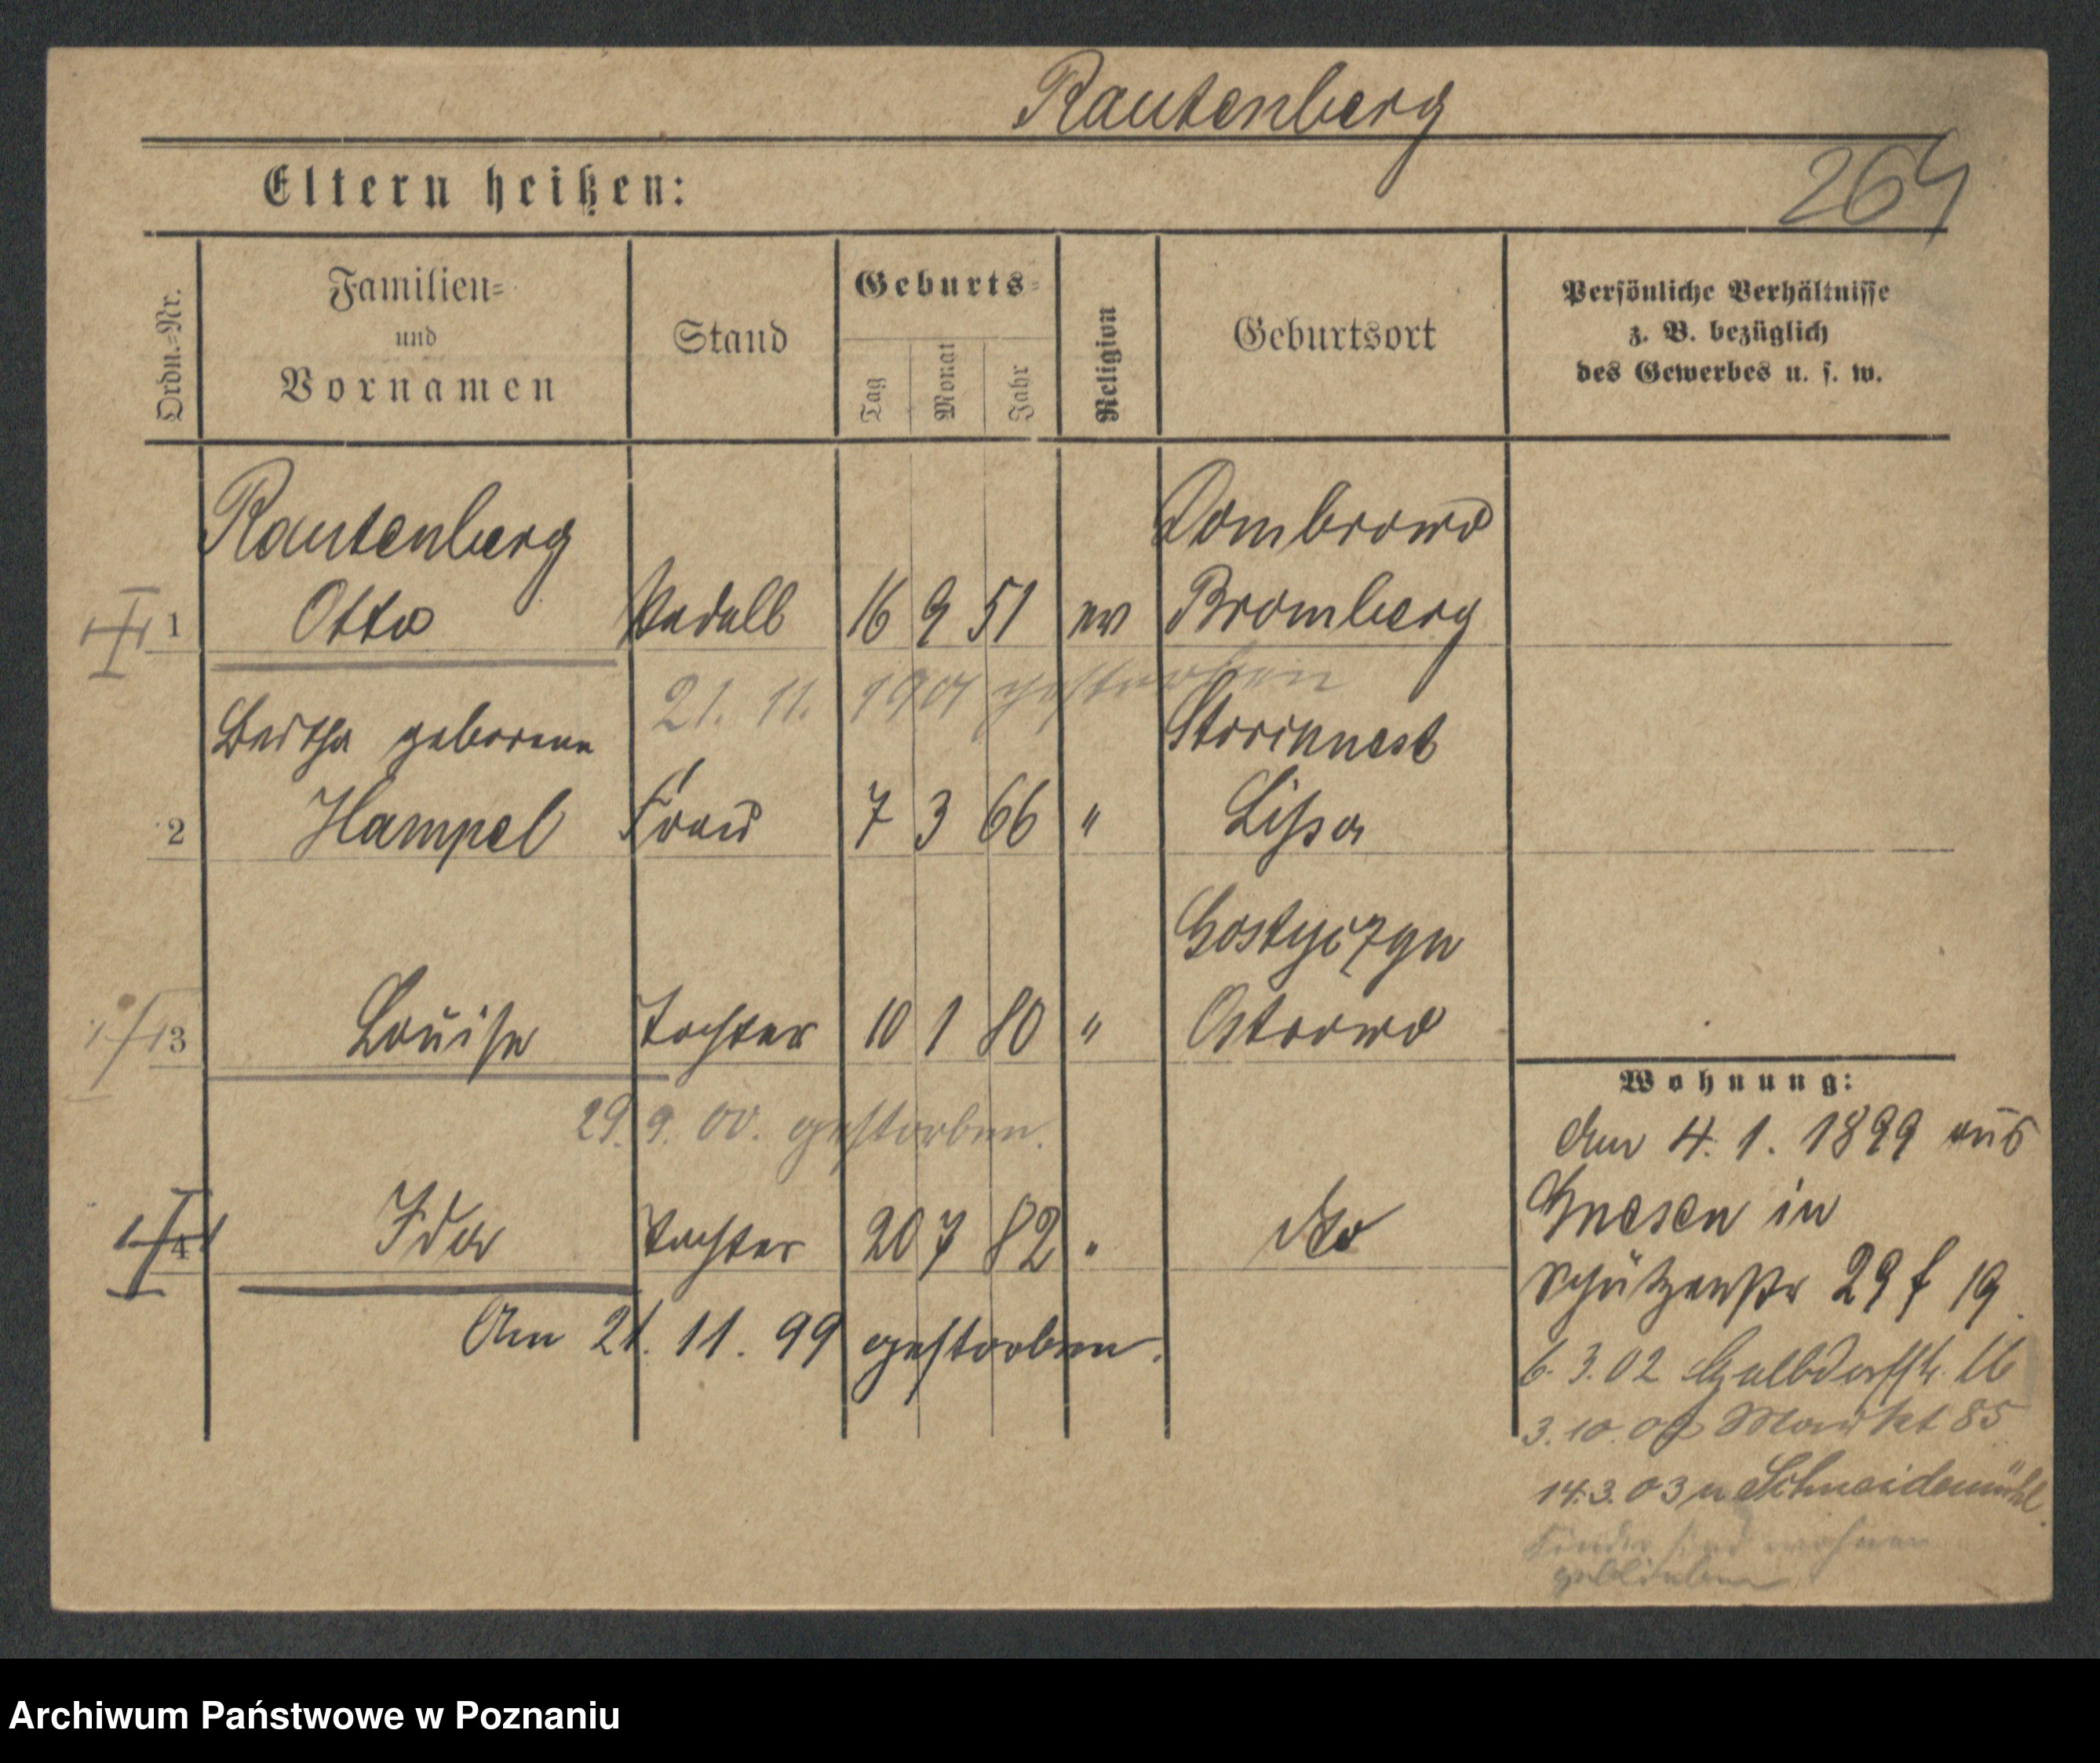 Rautenberg
264
Eltern heißen:
Ordn.-Nr.
Familien-
und
Vornamen
Stand
Geburts-
Tag
Monat
Jahr
Religion
Geburtsort
Persönliche Verhältnisse
z. B. bezüglich
des Gewerbes u. s. w.
Rautenberg Dombrowo
1 Otto Pedell 16 9 51 ev Bromberg
21. 11. 1901 gestorben
Bertha geborene Storchnest
2 Hampel Frau 7 3 66 " Lissa
Gostyczyn
3 Louise Tochter 10 1 80 " Ostrowo
29. 9. 00. gestorben.
4 Ida Tochter 20 7 82 " dto
Am 21. 11. 99 gestorben.
Wohnung:
den 4. 1. 1899 aus
Gnesen in
Schützenstr 29 f 19.
6. 3. 02 Halbdorfstr. 16
3. 10. 02 Markt 85
14. 3. 03 n Schneidemühl.
Kinder sind
geblieben